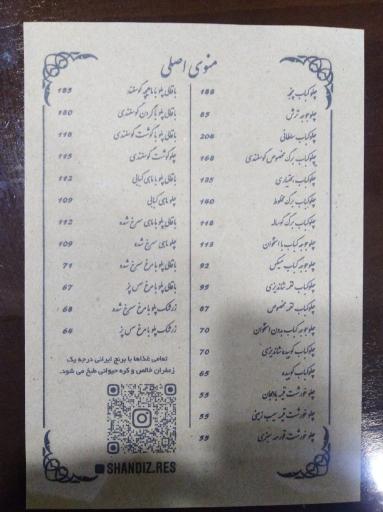 منوی اصلی
چلوکباب پنجر 188
چلو جوجه ترش 85
چلوکباب سلطانی 206
چلوکباب برگ مخصوص گوسفندی 168
چلوکباب بختیاری 135
چلوکباب برگ مخلوط 140
چلوکباب برگ گوساله 118
چلو جوجه کباب با استخوان 113
چلو جوجه کباب مکزیکی 92
چلوکباب لقمه شاندیزی 99
چلوکباب لقمه مخصوص 87
چلو جوجه کباب بدون استخوان 70
چلوکباب کوبیده شاندیزی 70
چلوکباب کوبیده 65
چلو خورشت قیمه بادمجان 55
چلو خورشت قیمه سیب زمینی 55
چلو خورشت قورمه سبزی 55
باقالی پلو با ماهیچه گوسفند 185
باقالی پلو با گردن گوسفندی 180
باقالی پلو با گوشت گوسفندی 118
چلو گوشت گوسفندی 115
باقالی پلو با ماهی کبابی 112
چلو ماهی کبابی 109
باقالی پلو با ماهی سرخ شده 112
چلو ماهی سرخ شده 109
باقالی پلو با مرغ سرخ شده 71
باقالی پلو با مرغ سس پز 67
زرشک پلو با مرغ سرخ شده 68
زرشک پلو با مرغ سس پز 64
تمامی غذاها با برنج ایرانی درجه یک
زعفران خالص و کره حیوانی طبخ می شود.
SHANDIZ.RES